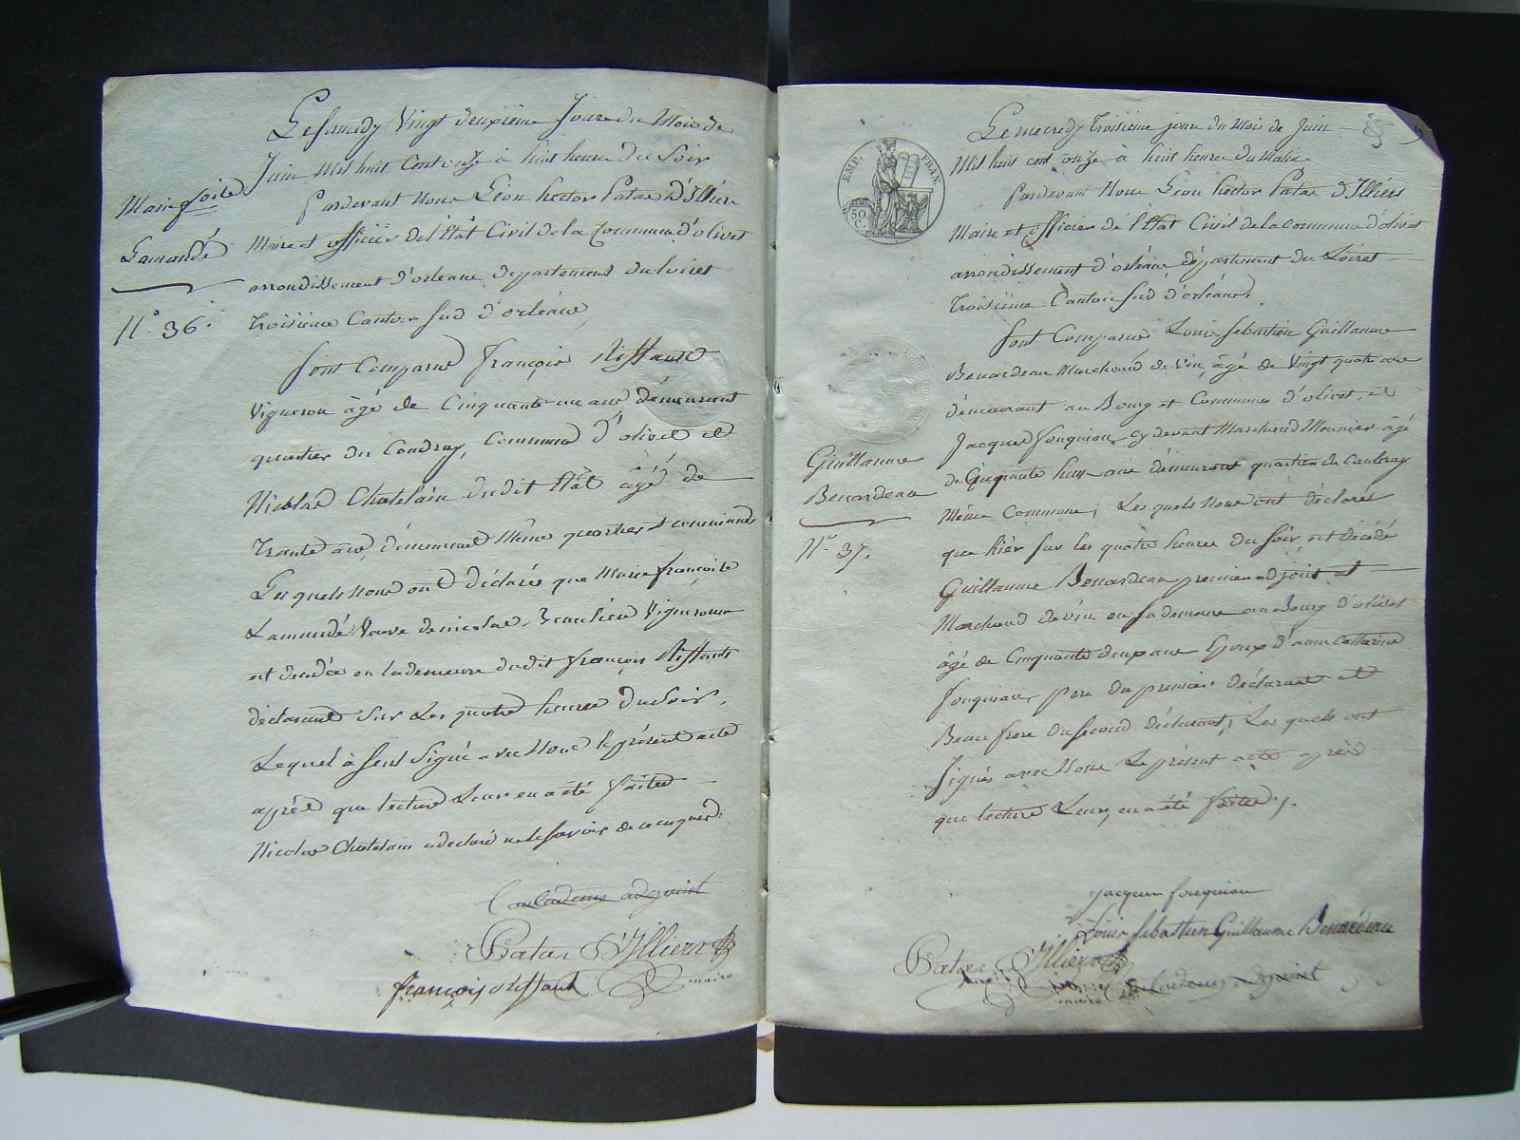 Le samedy Vingt deuxieme Jour du Mois de
Juin Mil huit Cent onze à huit heure du Soir
Pardevant Nous Léon hector Patas D'Illiers
Maire et officier de l'Etat Civil de la Commune d'olivet
arrondissement d'orleans departement du loiret
troisième Canton Sud d'orléans
Marie fçoise
Lamandé
N° 36.
Sont Comparus françois Riffault
Vigneron âgé de Cinquante un ans démeurant
quartier du Coudray, Commune d'olivet et
Nicolas Chatelain dudit Etât âgé de
trante ans, démeurant Même quartier et commune
Lesquels Nous ont déclarés que Marie françoise
Lamandé Veuve de nicolas Vigneronne
est decedée en la demeure dudit françois Riffault
déclarant Sur Les quatre heures du Soir,
Lequel à Seul Signé avec Nous le présent acte
après que lecture Leur en a été faitte
Nicolas Chatelain a declaré ne le savoir de ce enquis.
adjoint
Patas D'Illiers
maire
françois riffault
Le mecredy troisieme jour du Mois de Juin
Mil huit cent onze à huit heure du Matin
Pardevant Nous Léon hector Patas D'Illiers
Maire et officier de l'Etât Civil de la Commune d'olivet
arrondissement d'orléans département du Loiret
troisième Canton Sud d'orléans.
EMP. FRAN.
50 C.
Sont Comparus Louis Sebastien Guillaume
Benardeau Marchand de Vin, âgé de Vingt quatre ans
démeurant au Bourg et Commune d'olivet, et
Jacques fouqueau cy devant Marchand Meunier âgé
de Cinquante huit ans démeurant quartier du Coudray
Même Commune; Lesquels Nous ont déclarés
Guillaume
Benardeau
N° 37.
que hièr sur les quatre heures du Soir est décédé
Guillaume Benardeau premier adjoint et
Marchand de vin en sa demeure au Bourg d'olivet
âgé de Cinquante deux ans Epoux d'anne Catherine
fouqueau, pere du premier déclarant et
Beau frere du second déclarant; Les quels ont
Signés avec Nous Le présent acte après
que lecture Leur en a été faitte.
jacques fouqueau
Louis Sebastien Guillaume Benardeau
Patas D'Illiers
maire
adjoint